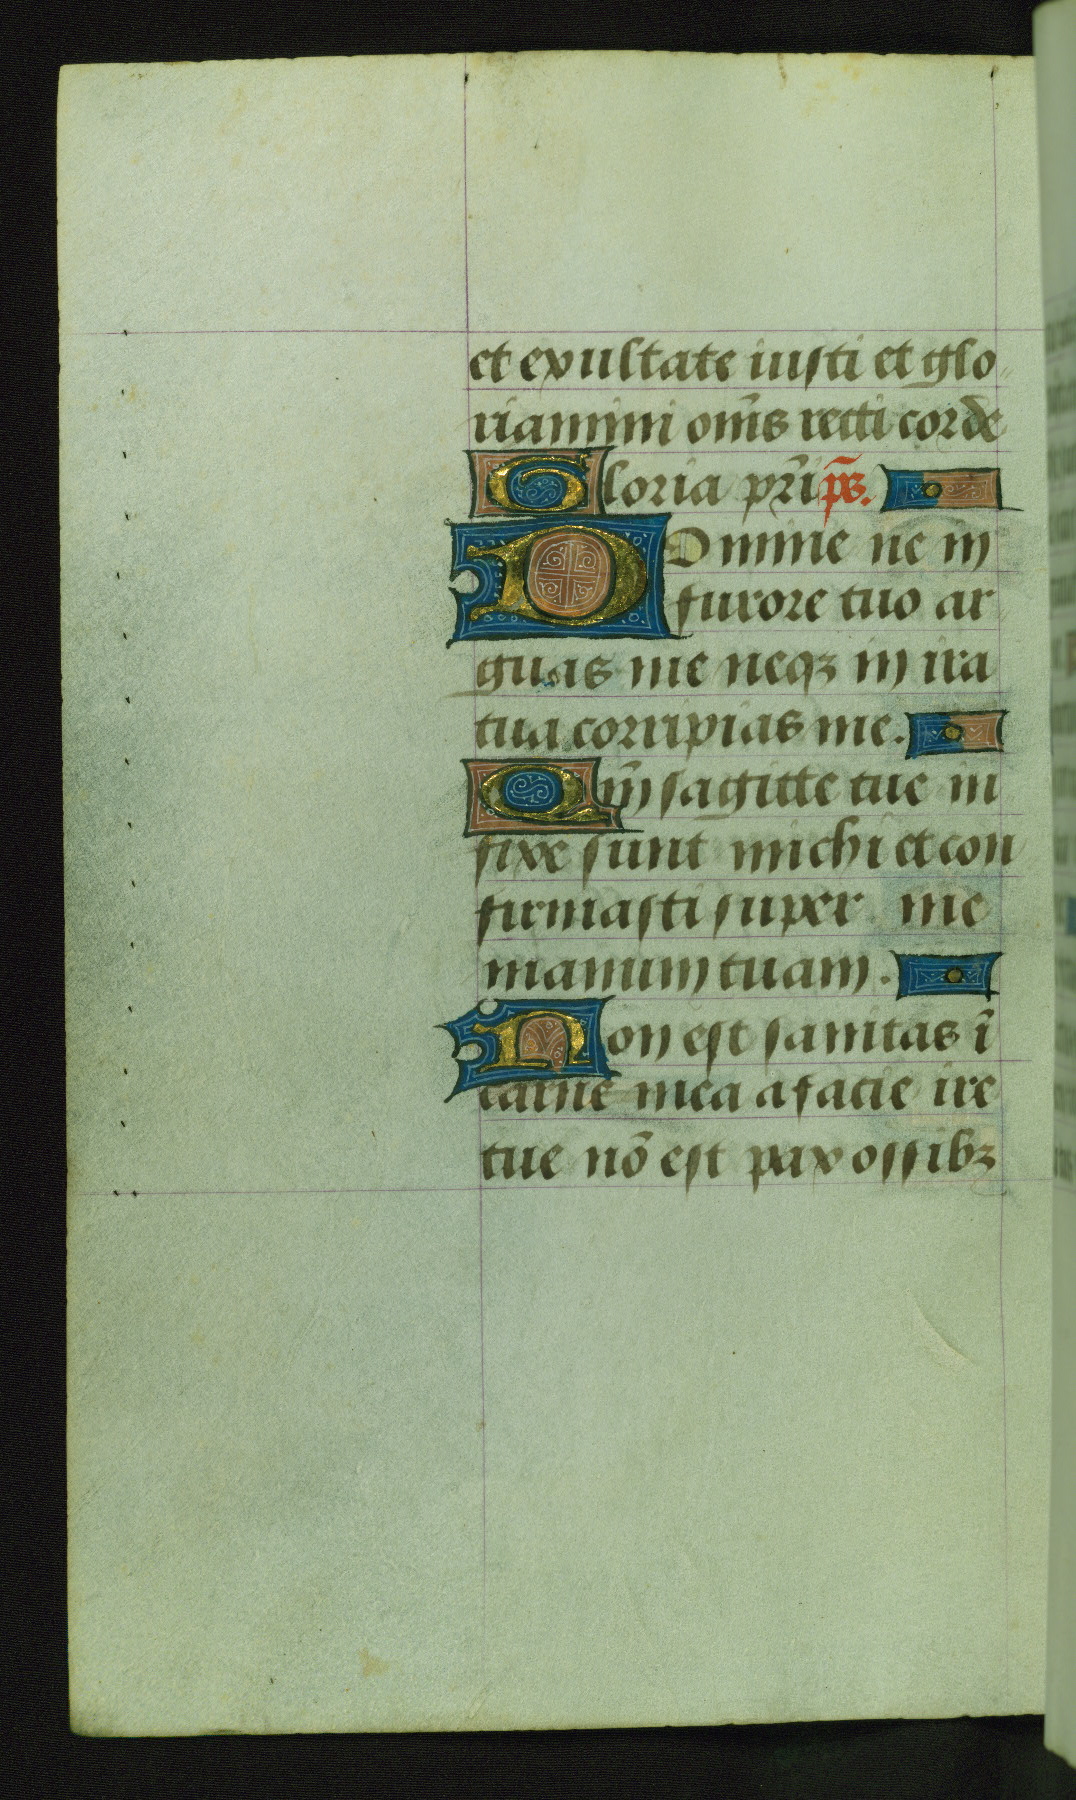 et exultate iusti et glo
riamini om̄s recti corde
Gloria pr̄i ps̄.
Domine ne in
furore tuo ar
guas me neqꝫ in ira
tua corripias me.
Qm̄ sagitte tue in
fixe sunt michi et con
firmasti super me
manum tuam.
Non est sanitas ī
carne mea a facie ire
tue nō est pax ossibꝫ